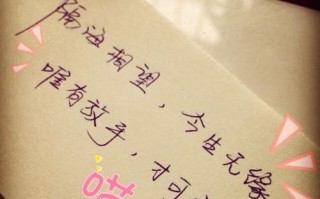 隔海相望，今生无缘
唯有放手，才可